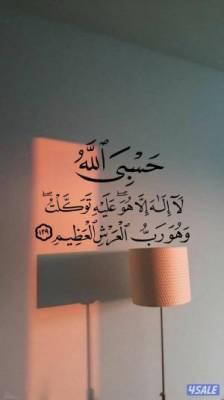 حَسْبِيَ ٱللَّهُ
لَآ إِلَٰهَ إِلَّا هُوَ ۖ عَلَيْهِ تَوَكَّلْتُ ۖ
وَهُوَ رَبُّ ٱلْعَرْشِ ٱلْعَظِيمِ ١٢٩
4SALE